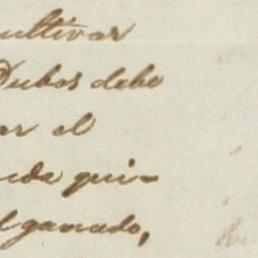 cultivar
Dubos debe
ar el
eda qui-
el ganado,